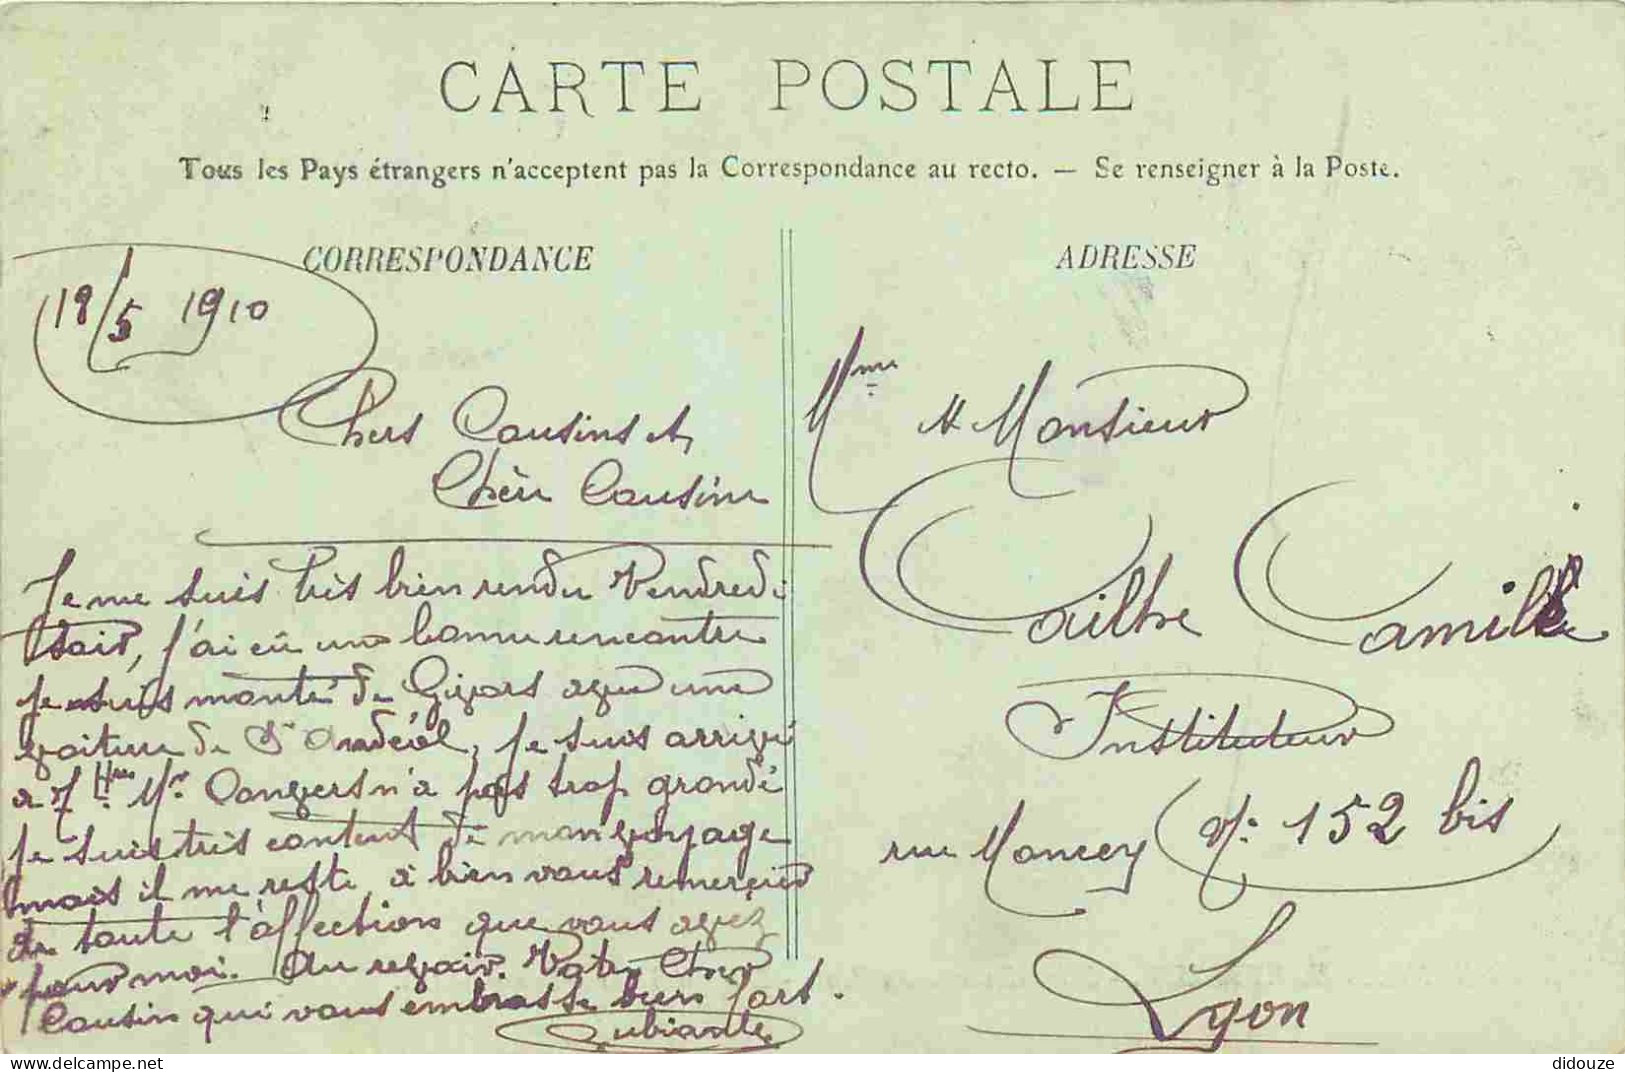 CARTE POSTALE
Tous les Pays étrangers n'acceptent pas la Correspondance au recto. — Se renseigner à la Poste.
CORRESPONDANCE
18/5 1910
Chers Cousins et
Chère Cousine
Je me suis très bien rendu Vendredi
soir, j'ai eu une bonne rencontre
je suis monté de Givors avec une
voiture de St Andéol, je suis arrivé
à 7 Hres Mr n'a pas trop grondé
je suis très content de mon voyage
mais il me reste à bien vous remercier
de toute l'affection que vous avez
pour moi. Au revoir. Votre Cher
Cousin qui vous embrasse bien fort.
ADRESSE
Mme & Monsieur
Camille
Instituteur
rue Moncey No: 152 bis
Lyon
didouze